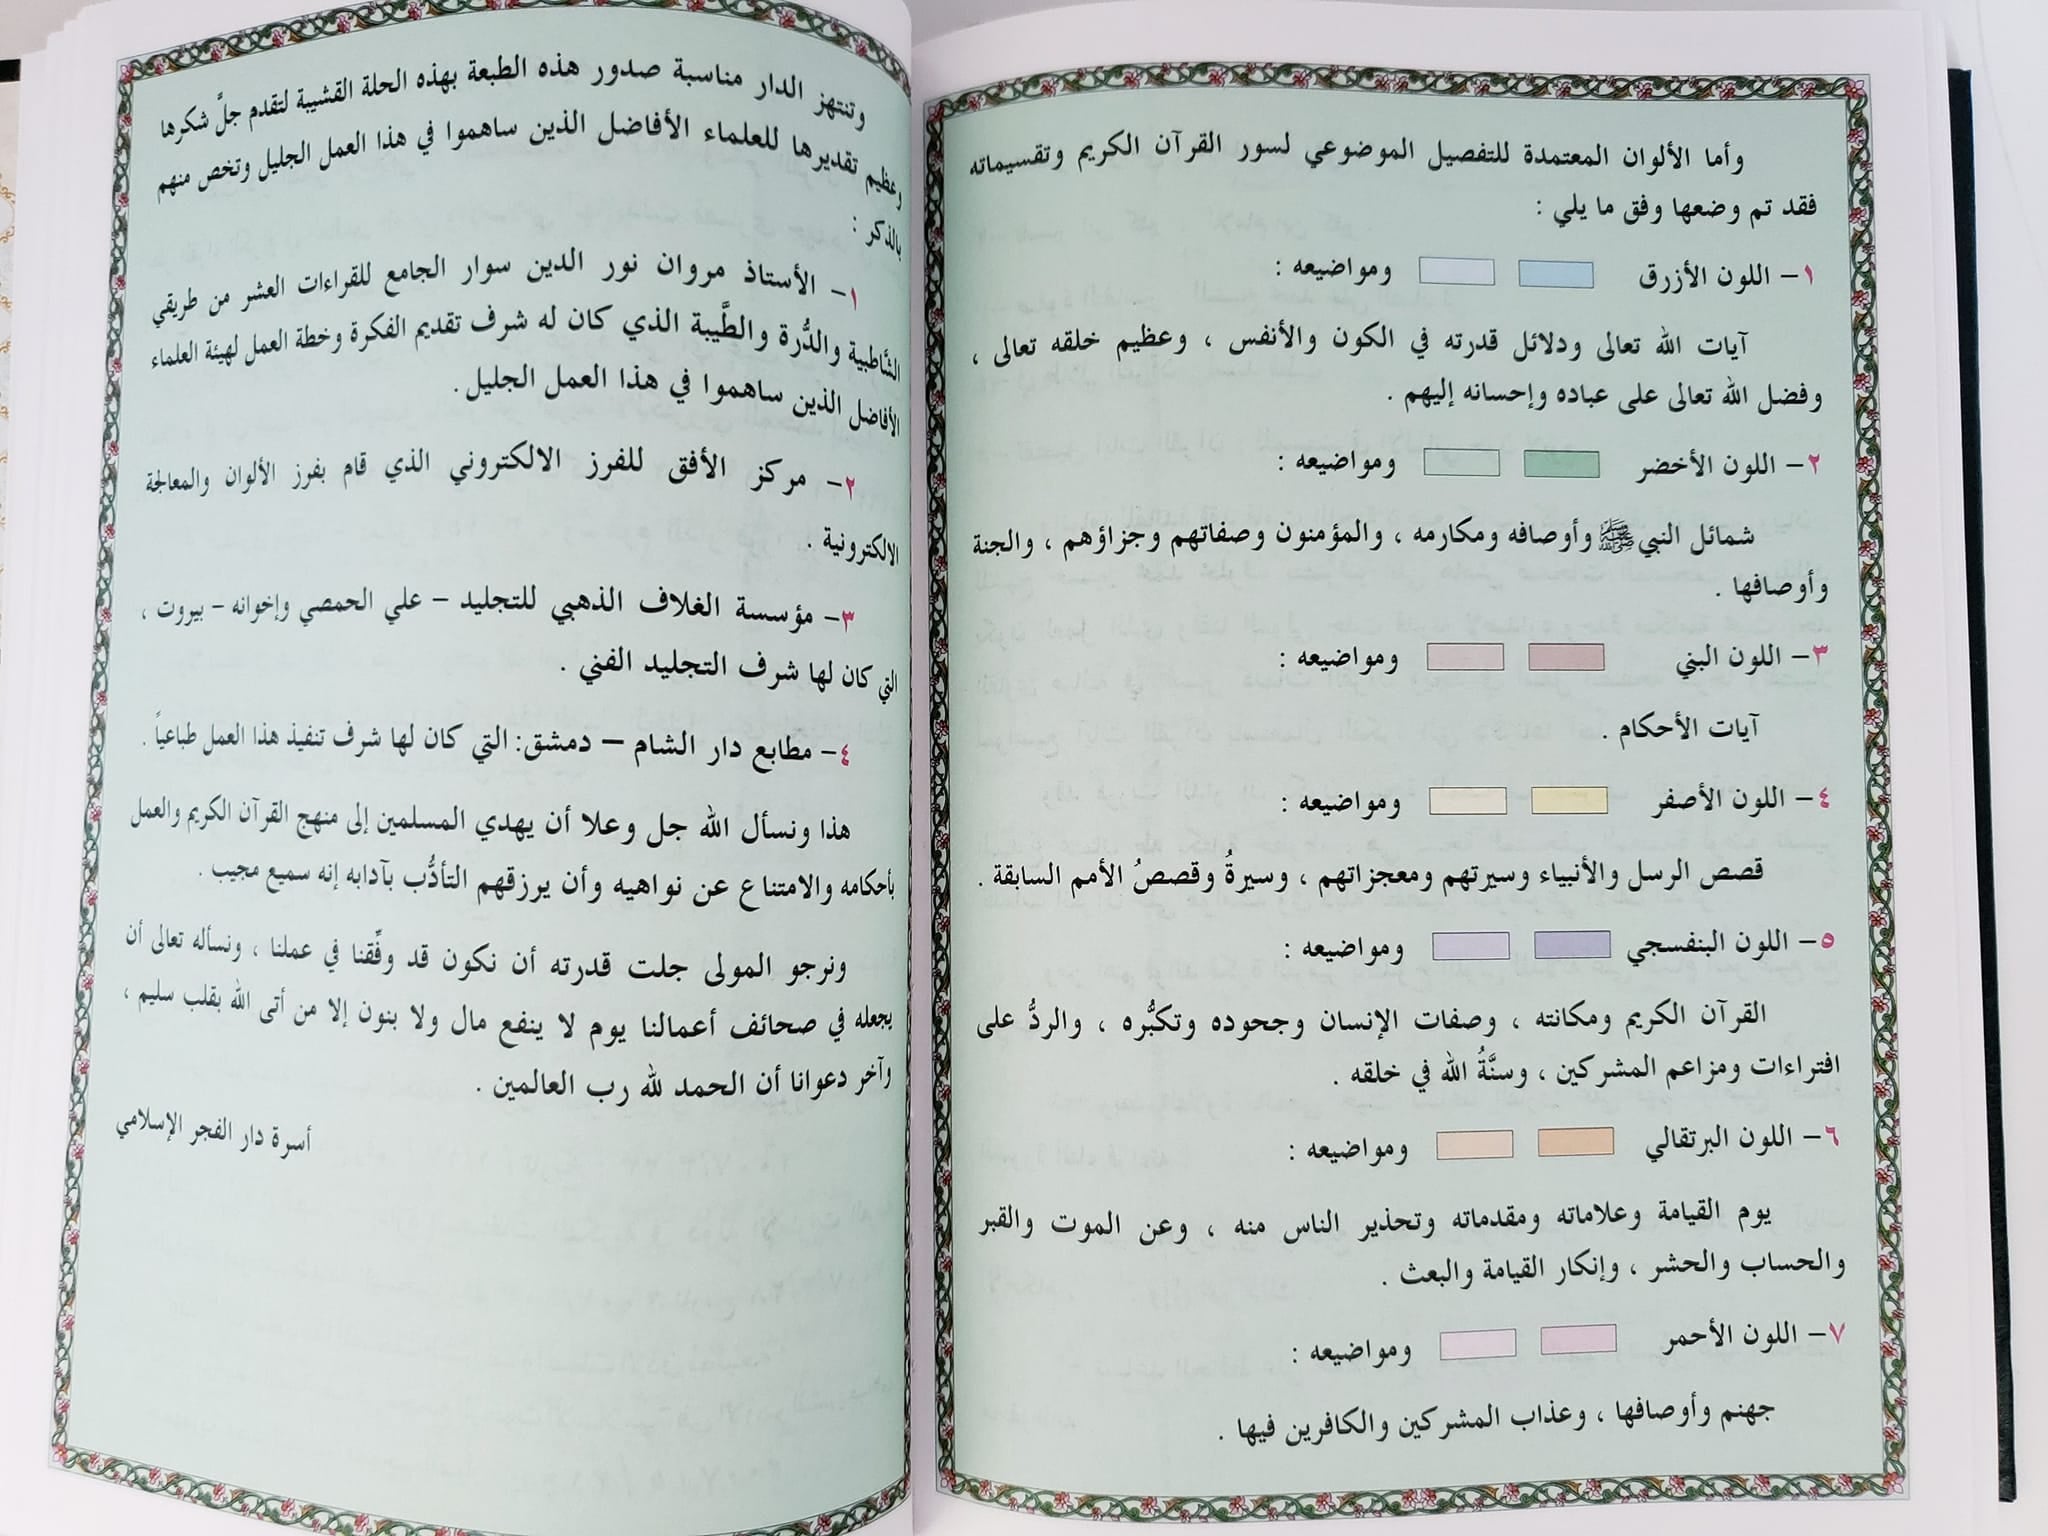 وأما الألوان المعتمدة للتفصيل الموضوعي لسور القرآن الكريم وتقسيماته
فقد تم وضعها وفق ما يلي :
١- اللون الأزرق ومواضيعه :
آيات الله تعالى ودلائل قدرته في الكون والأنفس ، وعظيم خلقه تعالى ،
وفضل الله تعالى على عباده وإحسانه إليهم .
٢- اللون الأخضر ومواضيعه :
شمائل النبي ﷺ وأوصافه ومكارمه ، والمؤمنون وصفاتهم وجزاؤهم ، والجنة
وأوصافها .
٣- اللون البني ومواضيعه :
آيات الأحكام .
٤- اللون الأصفر ومواضيعه :
قصص الرسل والأنبياء وسيرتهم ومعجزاتهم ، وسيرةُ وقصصُ الأمم السابقة .
٥- اللون البنفسجي ومواضيعه :
القرآن الكريم ومكانته ، وصفات الإنسان وجحوده وتكبُّره ، والردُّ على
افتراءات ومزاعم المشركين ، وسنَّةُ الله في خلقه .
٦- اللون البرتقالي ومواضيعه :
يوم القيامة وعلاماته ومقدماته وتحذير الناس منه ، وعن الموت والقبر
والحساب والحشر ، وإنكار القيامة والبعث .
٧- اللون الأحمر ومواضيعه :
جهنم وأوصافها ، وعذاب المشركين والكافرين فيها .
وتنتهز الدار مناسبة صدور هذه الطبعة بهذه الحلة القشيبة لتقدم جلَّ شكرها
وعظيم تقديرها للعلماء الأفاضل الذين ساهموا في هذا العمل الجليل وتخص منهم
بالذكر :
١- الأستاذ مروان نور الدين سوار الجامع للقراءات العشر من طريقي
الشَّاطبية والدُّرة والطَّيبة الذي كان له شرف تقديم الفكرة وخطة العمل لهيئة العلماء
الأفاضل الذين ساهموا في هذا العمل الجليل .
٢- مركز الأفق للفرز الالكتروني الذي قام بفرز الألوان والمعالجة
الالكترونية .
٣- مؤسسة الغلاف الذهبي للتجليد – علي الحمصي وإخوانه – بيروت ،
التي كان لها شرف التجليد الفني .
٤- مطابع دار الشام – دمشق: التي كان لها شرف تنفيذ هذا العمل طباعياً .
هذا ونسأل الله جل وعلا أن يهدي المسلمين إلى منهج القرآن الكريم والعمل
بأحكامه والامتناع عن نواهيه وأن يرزقهم التأدُّب بآدابه إنه سميع مجيب .
ونرجو المولى جلت قدرته أن نكون قد وفِّقنا في عملنا ، ونسأله تعالى أن
يجعله في صحائف أعمالنا يوم لا ينفع مال ولا بنون إلا من أتى الله بقلب سليم ،
وآخر دعوانا أن الحمد لله رب العالمين .
أسرة دار الفجر الإسلامي